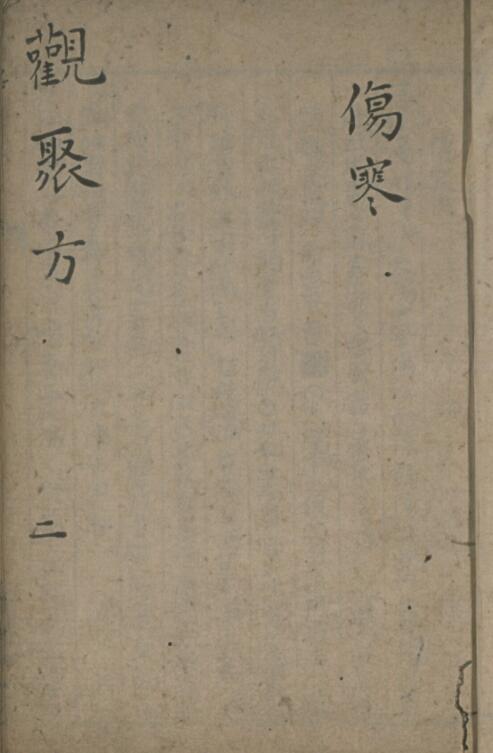 傷寒
觀聚方
二